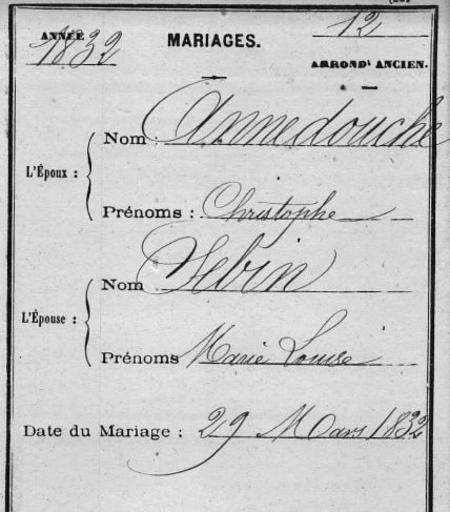 ANNÉE
1832
MARIAGES.
12
ARRONDT ANCIEN.
L'Époux :
Nom Annedouche
Prénoms : Christophe
L'Épouse :
Nom Sebin
Prénoms Marie Louise
Date du Mariage : 29 Mars 1832